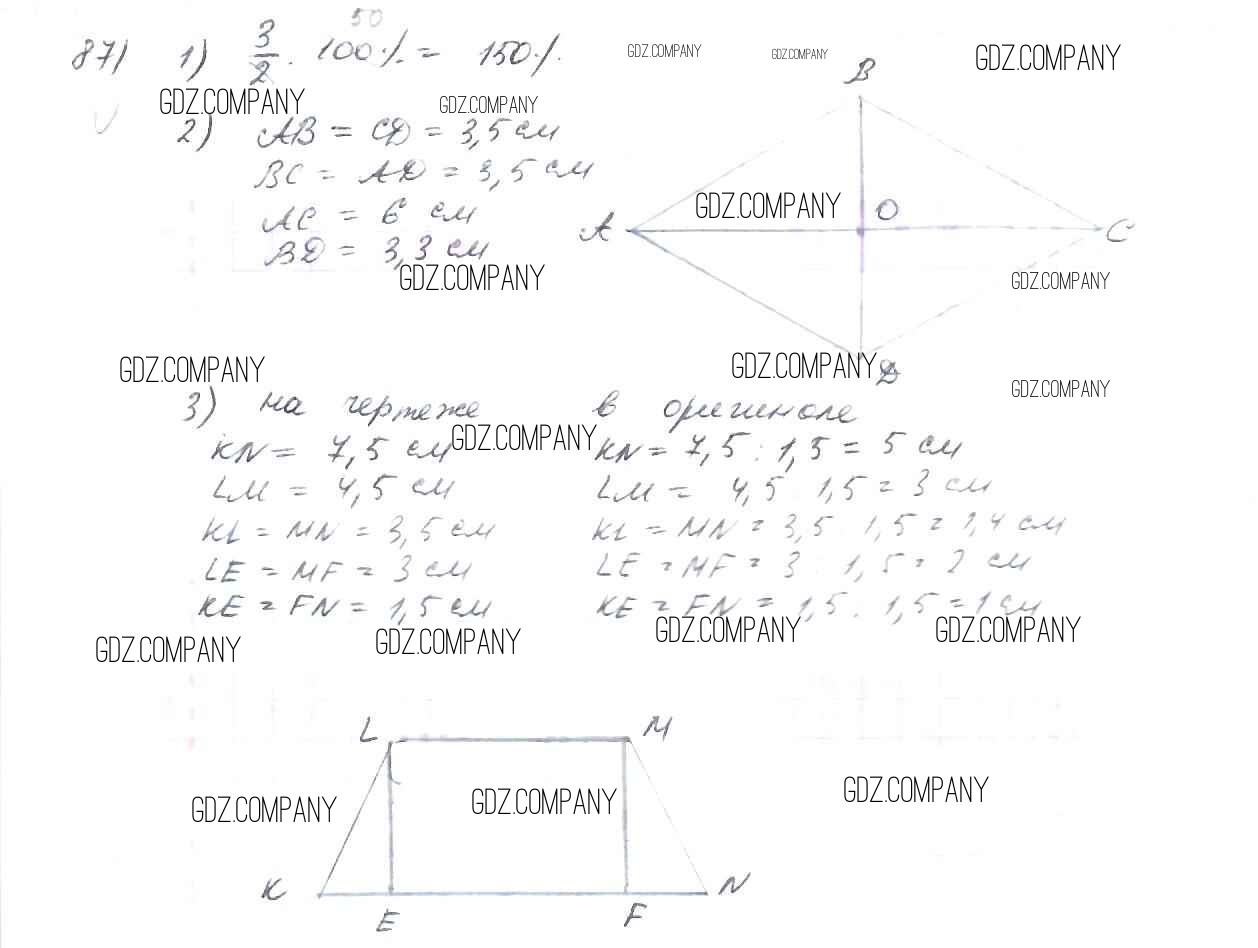 50
87) 1) 3/2 · 100% = 150%.
GDZ.COMPANY GDZ.COMPANY GDZ.COMPANY
B
GDZ.COMPANY GDZ.COMPANY
2) AB = CD = 3,5 см
BC = AD = 3,5 см
GDZ.COMPANY
AC = 6 см
O
A C
BD = 3,3 см
GDZ.COMPANY GDZ.COMPANY
GDZ.COMPANY GDZ.COMPANY D
GDZ.COMPANY
3) на чертеже в оригинале
GDZ.COMPANY
KN = 7,5 см KN = 7,5 : 1,5 = 5 см
LM = 4,5 см LM = 4,5 : 1,5 = 3 см
KL = MN = 3,5 см KL = MN = 3,5 : 1,5 = 1,4 см
LE = MF = 3 см LE = MF = 3 : 1,5 = 2 см
KE = FN = 1,5 см KE = FN = 1,5 : 1,5 = 1 см
GDZ.COMPANY GDZ.COMPANY GDZ.COMPANY GDZ.COMPANY
L M
GDZ.COMPANY GDZ.COMPANY GDZ.COMPANY
K N
E F